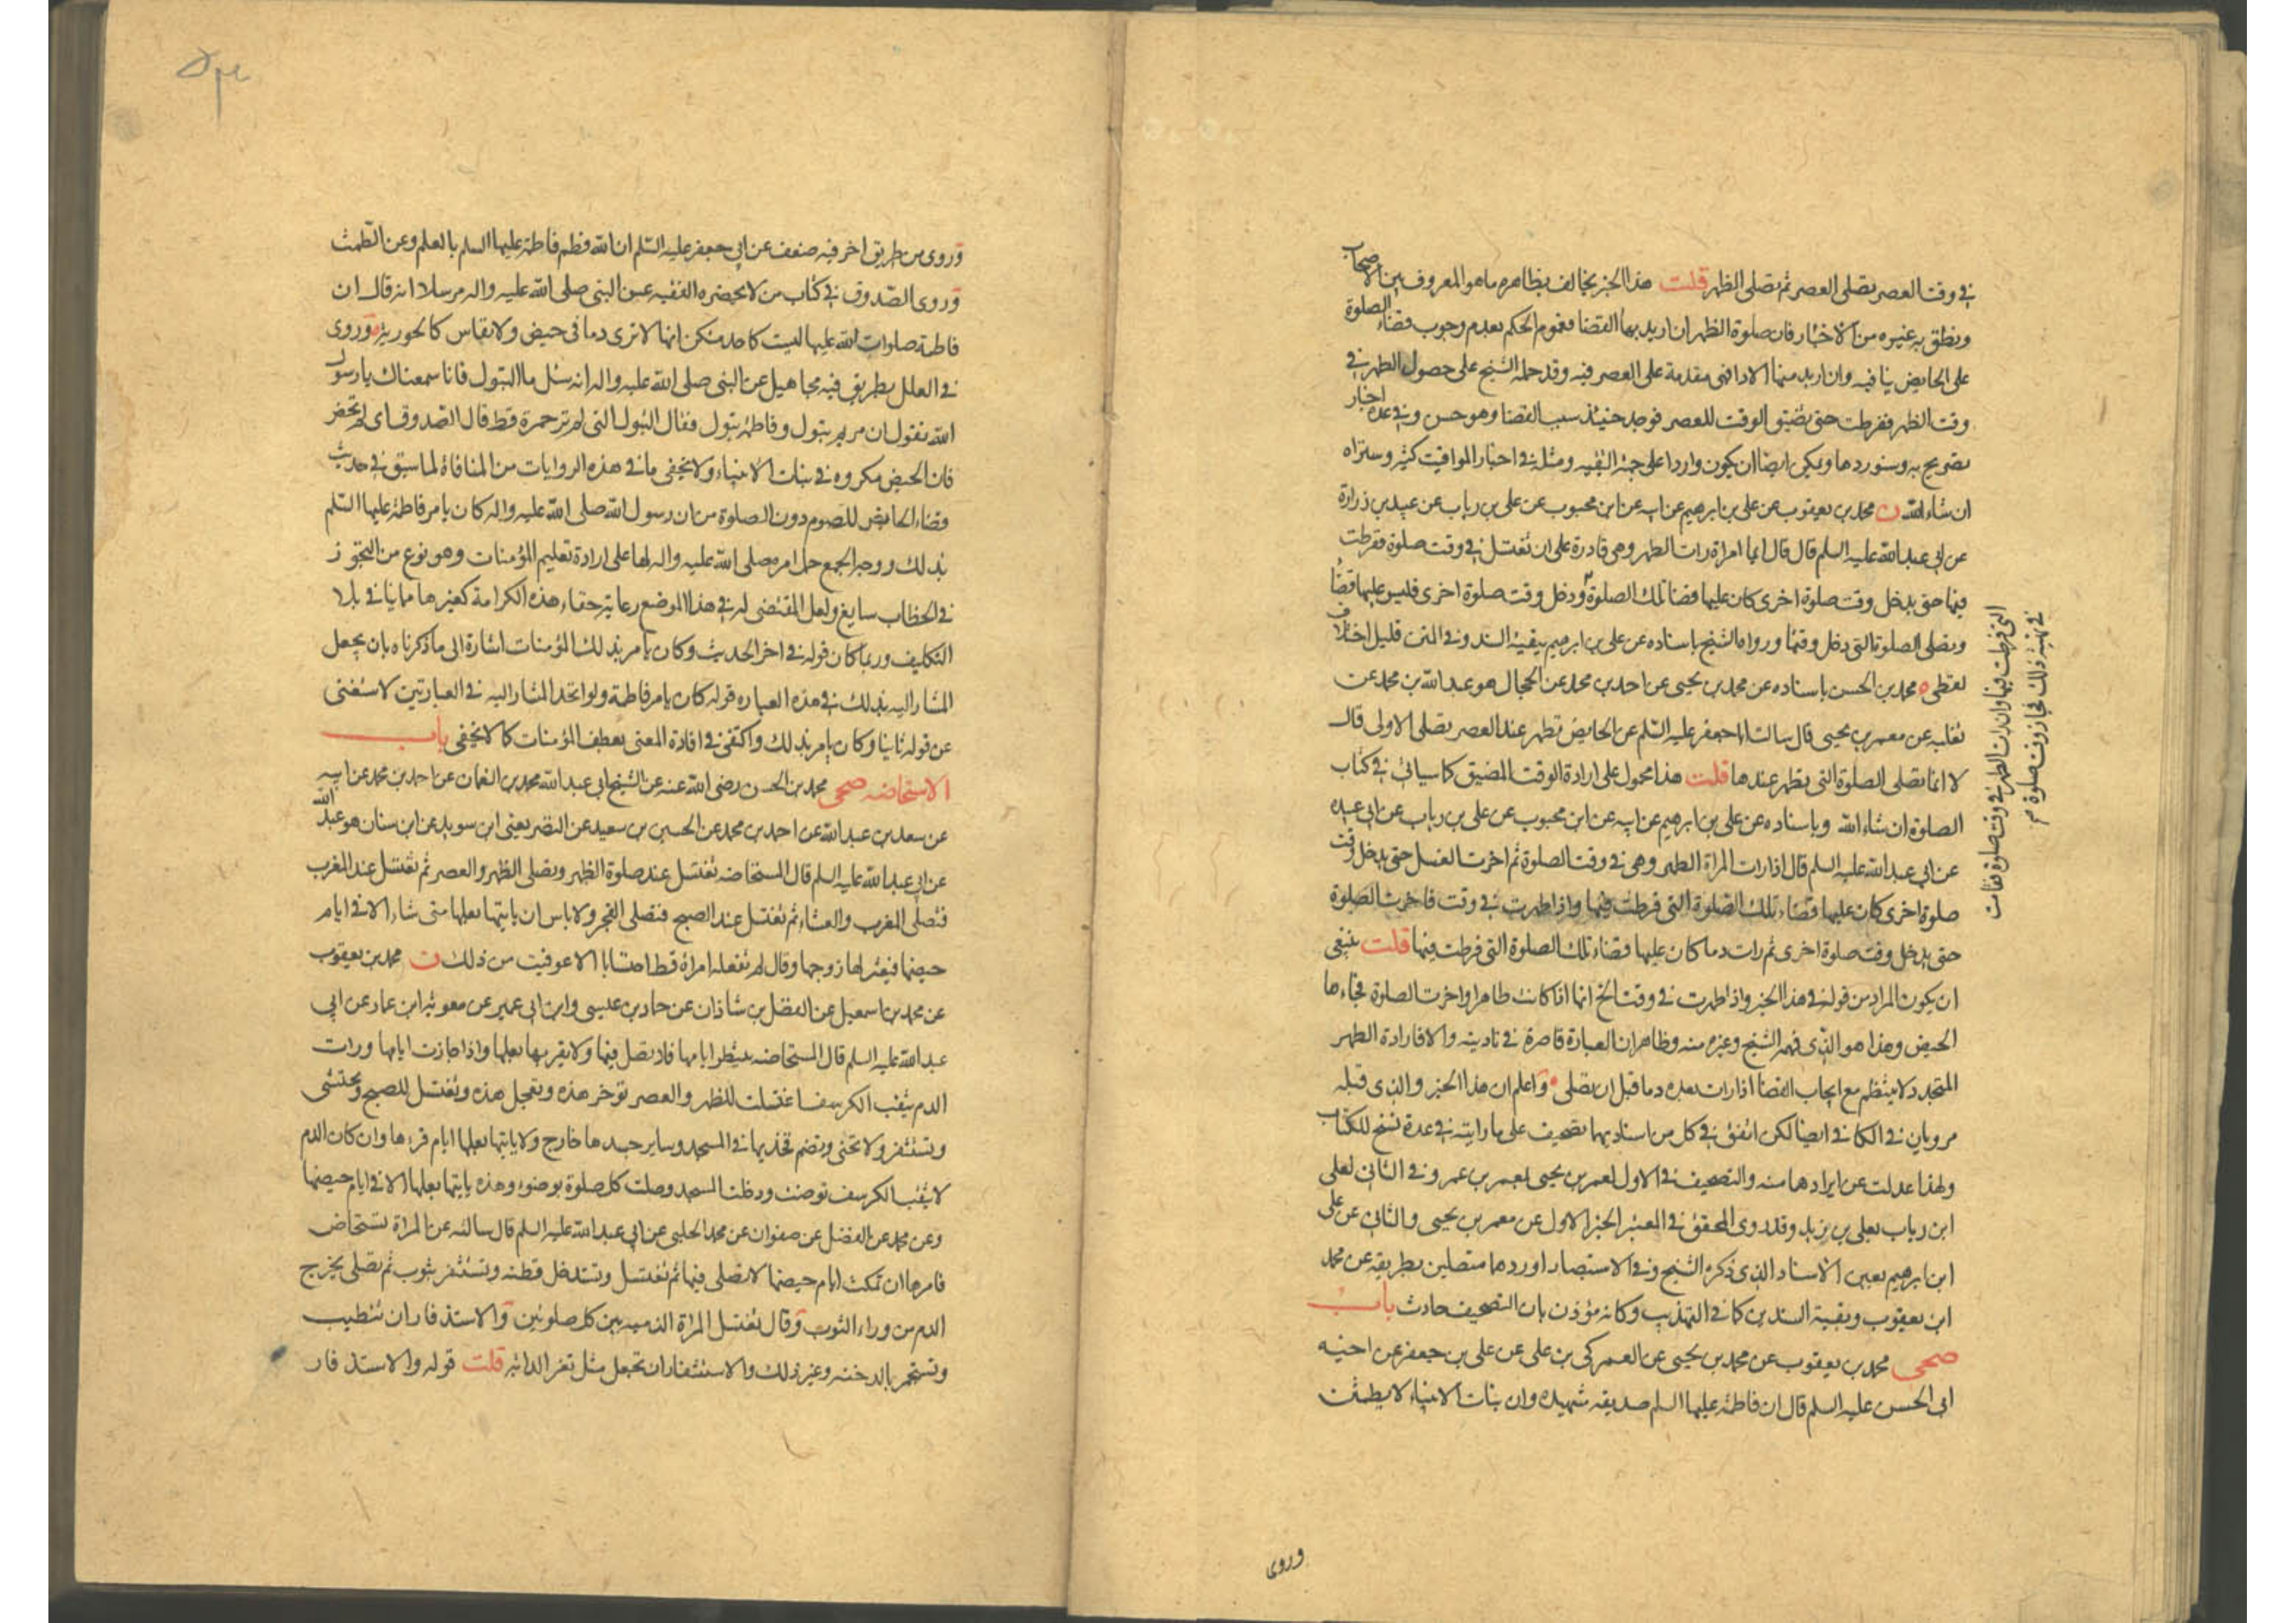 في وقت العصر تصلى العصر ثم تصلى الظهر قلت هذا الخبر يخالف بظاهره ما هو المعروف بين الاصحاب
ونطق به غيره من الاخبار فان صلوة الظهر ان اريد بها القضا فعموم الحكم بعدم وجوب قضاء الصلوة
على الحايض ينافيه وان اريد منها الادا فهى مقدمة على العصر فيه وقد حمله الشيخ على حصول الطهر في
وقت الظهر ففرطت حتى تضيق الوقت للعصر فوجد حينئذ سبب القضا وهو حسن وفي عدة اخبار
تصريح به وسنوردها ويمكن ايضا ان يكون واردا على جهة التقيه ومثله في اخبار المواقيت كثير وستراه
ان شاء الله ن محمد بن يعقوب عن على بن ابرهيم عن ابيه عن ابن محبوب عن على بن رياب عن عبيد بن زرارة
عن ابي عبد الله عليه السلم قال قال ايما امراة رات الطهر وهى قادرة على ان تغتسل في وقت صلوة ففرطت
فيها حتى يدخل وقت صلوة اخرى كان عليها قضا تلك الصلوة ودخل وقت صلوة اخرى فليس عليها قضا
وتصلى الصلوة التى دخل وقتها ورواه الشيخ باسناده عن على بن ابرهيم ببقية السند وفي المتن قليل اختلاف
لفظى ه محمد بن الحسن باسناده عن محمد بن يحيى عن احمد بن محمد عن الحجال هو عبد الله بن محمد عن
ثعلبه عن معمر بن يحيى قال سالت ابا جعفر عليه السلم عن الحايض تطهر عند العصر تصلى الاولى قال
لا انما تصلى الصلوة التى تطهر عندها قلت هذا محمول على ارادة الوقت المضيق كما سياتي في كتاب
الصلوة ان شاء الله وباسناده عن على بن ابرهيم عن ابيه عن ابن محبوب عن على بن رياب عن ابي عبيده
عن ابي عبد الله عليه السلم قال اذا رات المراة الطهر وهى في وقت الصلوة ثم اخرت الغسل حتى يدخل وقت
صلوة اخرى كان عليها قضاء تلك الصلوة التى فرطت فيها واذا طهرت في وقت فاخرت الصلوة
حتى يدخل وقت صلوة اخرى ثم رات دما كان عليها قضاء تلك الصلوة التى فرطت فيها قلت ينبغى
ان يكون المراد من قوله في هذا الخبر واذا طهرت في وقت الخ انها اذا كانت طاهرا واخرت الصلوة فجاءها
الحيض وهذا هو الذى فهمه الشيخ وغيره منه وظاهر ان العبارة قاصرة في تاديته والا فارادة الطهر
المتجدد لا ينتظم مع ايجاب القضا اذا رات بعده دما قبل ان تصلى ه واعلم ان هذا الخبر والذى قبله
مرويان في الكافى ايضا لكن اتفق في كل من اسناديهما تصحيف على ما رايته في عدة نسخ للكتاب
ولهذا عدلت عن ايرادهما منه والتصحيف في الاول لمعمر بن يحيى بمعمر بن عمر وفي الثاني لعلى
ابن رياب بعلى بن زيد وقد روى المحقق في المعتبر الخبر الاول عن معمر بن يحيى والثاني عن على
ابن ابرهيم بعين الاسناد الذى ذكره الشيخ وفي الاستبصار اوردهما متصلين بطريقه عن محمد
ابن يعقوب وبقية السندين كما في التهذيب وكانه مؤذن بان التصحيف حادث باب
صحى محمد بن يعقوب عن محمد بن يحيى عن العمركى بن على عن على بن جعفر عن اخيه
ابي الحسن عليه السلم قال ان فاطمة عليها السلم صديقه شهيده وان بنات الانبياء لا يطمثن
التى فرطت فيها وان رات الطهر في وقت صلوة فقامت
في تهيئة ذلك فجاز وقت صلوة
وروى
وروى من طريق اخر فيه ضعف عن ابي جعفر عليه السلم ان الله فطم فاطمة عليها السلم بالعلم وعن الطمث
وروى الصدوق في كتاب من لا يحضره الفقيه عن النبى صلى الله عليه واله مرسلا انه قال ان
فاطمة صلوات الله عليها ليست كاحد منكن انها لا ترى دما في حيض ولا نفاس كالحورية وروى
في العلل بطريق فيه مجاهيل عن النبى صلى الله عليه واله انه سئل ما البتول فانا سمعناك يا رسول
الله تقول ان مريم بتول وفاطمة بتول فقال البتول التى لم تر حمرة قط قال الصدوق اى لم تحض
فان الحيض مكروه في بنات الانبياء ولا يخفى ما في هذه الروايات من المنافاة لما سبق في حديث
قضاء الحايض للصوم دون الصلوة من ان رسول الله صلى الله عليه واله كان يامر فاطمة عليها السلم
بذلك ووجه الجمع حمل امره صلى الله عليه واله لها على ارادة تعليم المؤمنات وهو نوع من التجوز
في الخطاب سايغ ولعل المقتضى له في هذا الموضع رعاية خفاء هذه الكرامة كغيرها مما ينافي بلا
التكليف وربما كان قوله في اخر الحديث وكان يامر بذلك المؤمنات اشارة الى ما ذكرناه بان يجعل
المشار اليه بذلك في هذه العبارة قوله كان يامر فاطمة ولو اتحد المشار اليه في العبارتين لاستغنى
عن قوله ثانيا وكان يامر بذلك واكتفى في افادة المعنى بعطف المؤمنات كما لا يخفى باب
الاستحاضه صحى محمد بن الحسن رضى الله عنه عن الشيخ ابي عبد الله محمد بن النعمان عن احمد بن محمد عن ابيه
عن سعد بن عبد الله عن احمد بن محمد عن الحسين بن سعيد عن النضر يعنى ابن سويد عن ابن سنان هو عبد الله
عن ابي عبد الله عليه السلم قال المستحاضه تغتسل عند صلوة الظهر وتصلى الظهر والعصر ثم تغتسل عند المغرب
فتصلى المغرب والعشاء ثم تغتسل عند الصبح فتصلى الفجر ولا باس ان ياتيها بعلها متى شاء الا في ايام
حيضها فيعتزلها زوجها وقال لم تفعله امراة قط احتسابا الا عوفيت من ذلك ن محمد بن يعقوب
عن محمد بن اسمعيل عن الفضل بن شاذان عن حماد بن عيسى وابن ابي عمير عن معوية ابن عمار عن ابي
عبد الله عليه السلم قال المستحاضه تنتظر ايامها فلا تصل فيها ولا يقربها بعلها واذا جازت ايامها ورات
الدم يثقب الكرسف اغتسلت للظهر والعصر تؤخر هذه وتعجل هذه وتغتسل للصبح وتحتشى
وتستثفر ولا تحنى وتضم فخذيها في المسجد وساير جسدها خارج ولا ياتيها بعلها ايام قرءها وان كان الدم
لا يثقب الكرسف توضت ودخلت المسجد وصلت كل صلوة بوضوء وهذه ياتيها بعلها الا في ايام حيضها
وعن محمد عن الفضل عن صفوان عن محمد الحلبى عن ابي عبد الله عليه السلم قال سالته عن المراة تستحاض
فامرها ان تمكث ايام حيضها لا تصلى فيها ثم تغتسل وتستدخل قطنه وتستثفر بثوب ثم تصلى يخرج
الدم من وراء الثوب وقال تغتسل المراة الدميه بين كل صلوتين والاستذفار ان تتطيب
وتستجمر بالدخنه وغير ذلك والاستثفار ان تجعل مثل ثفر الدابة قلت قوله والاستذفار